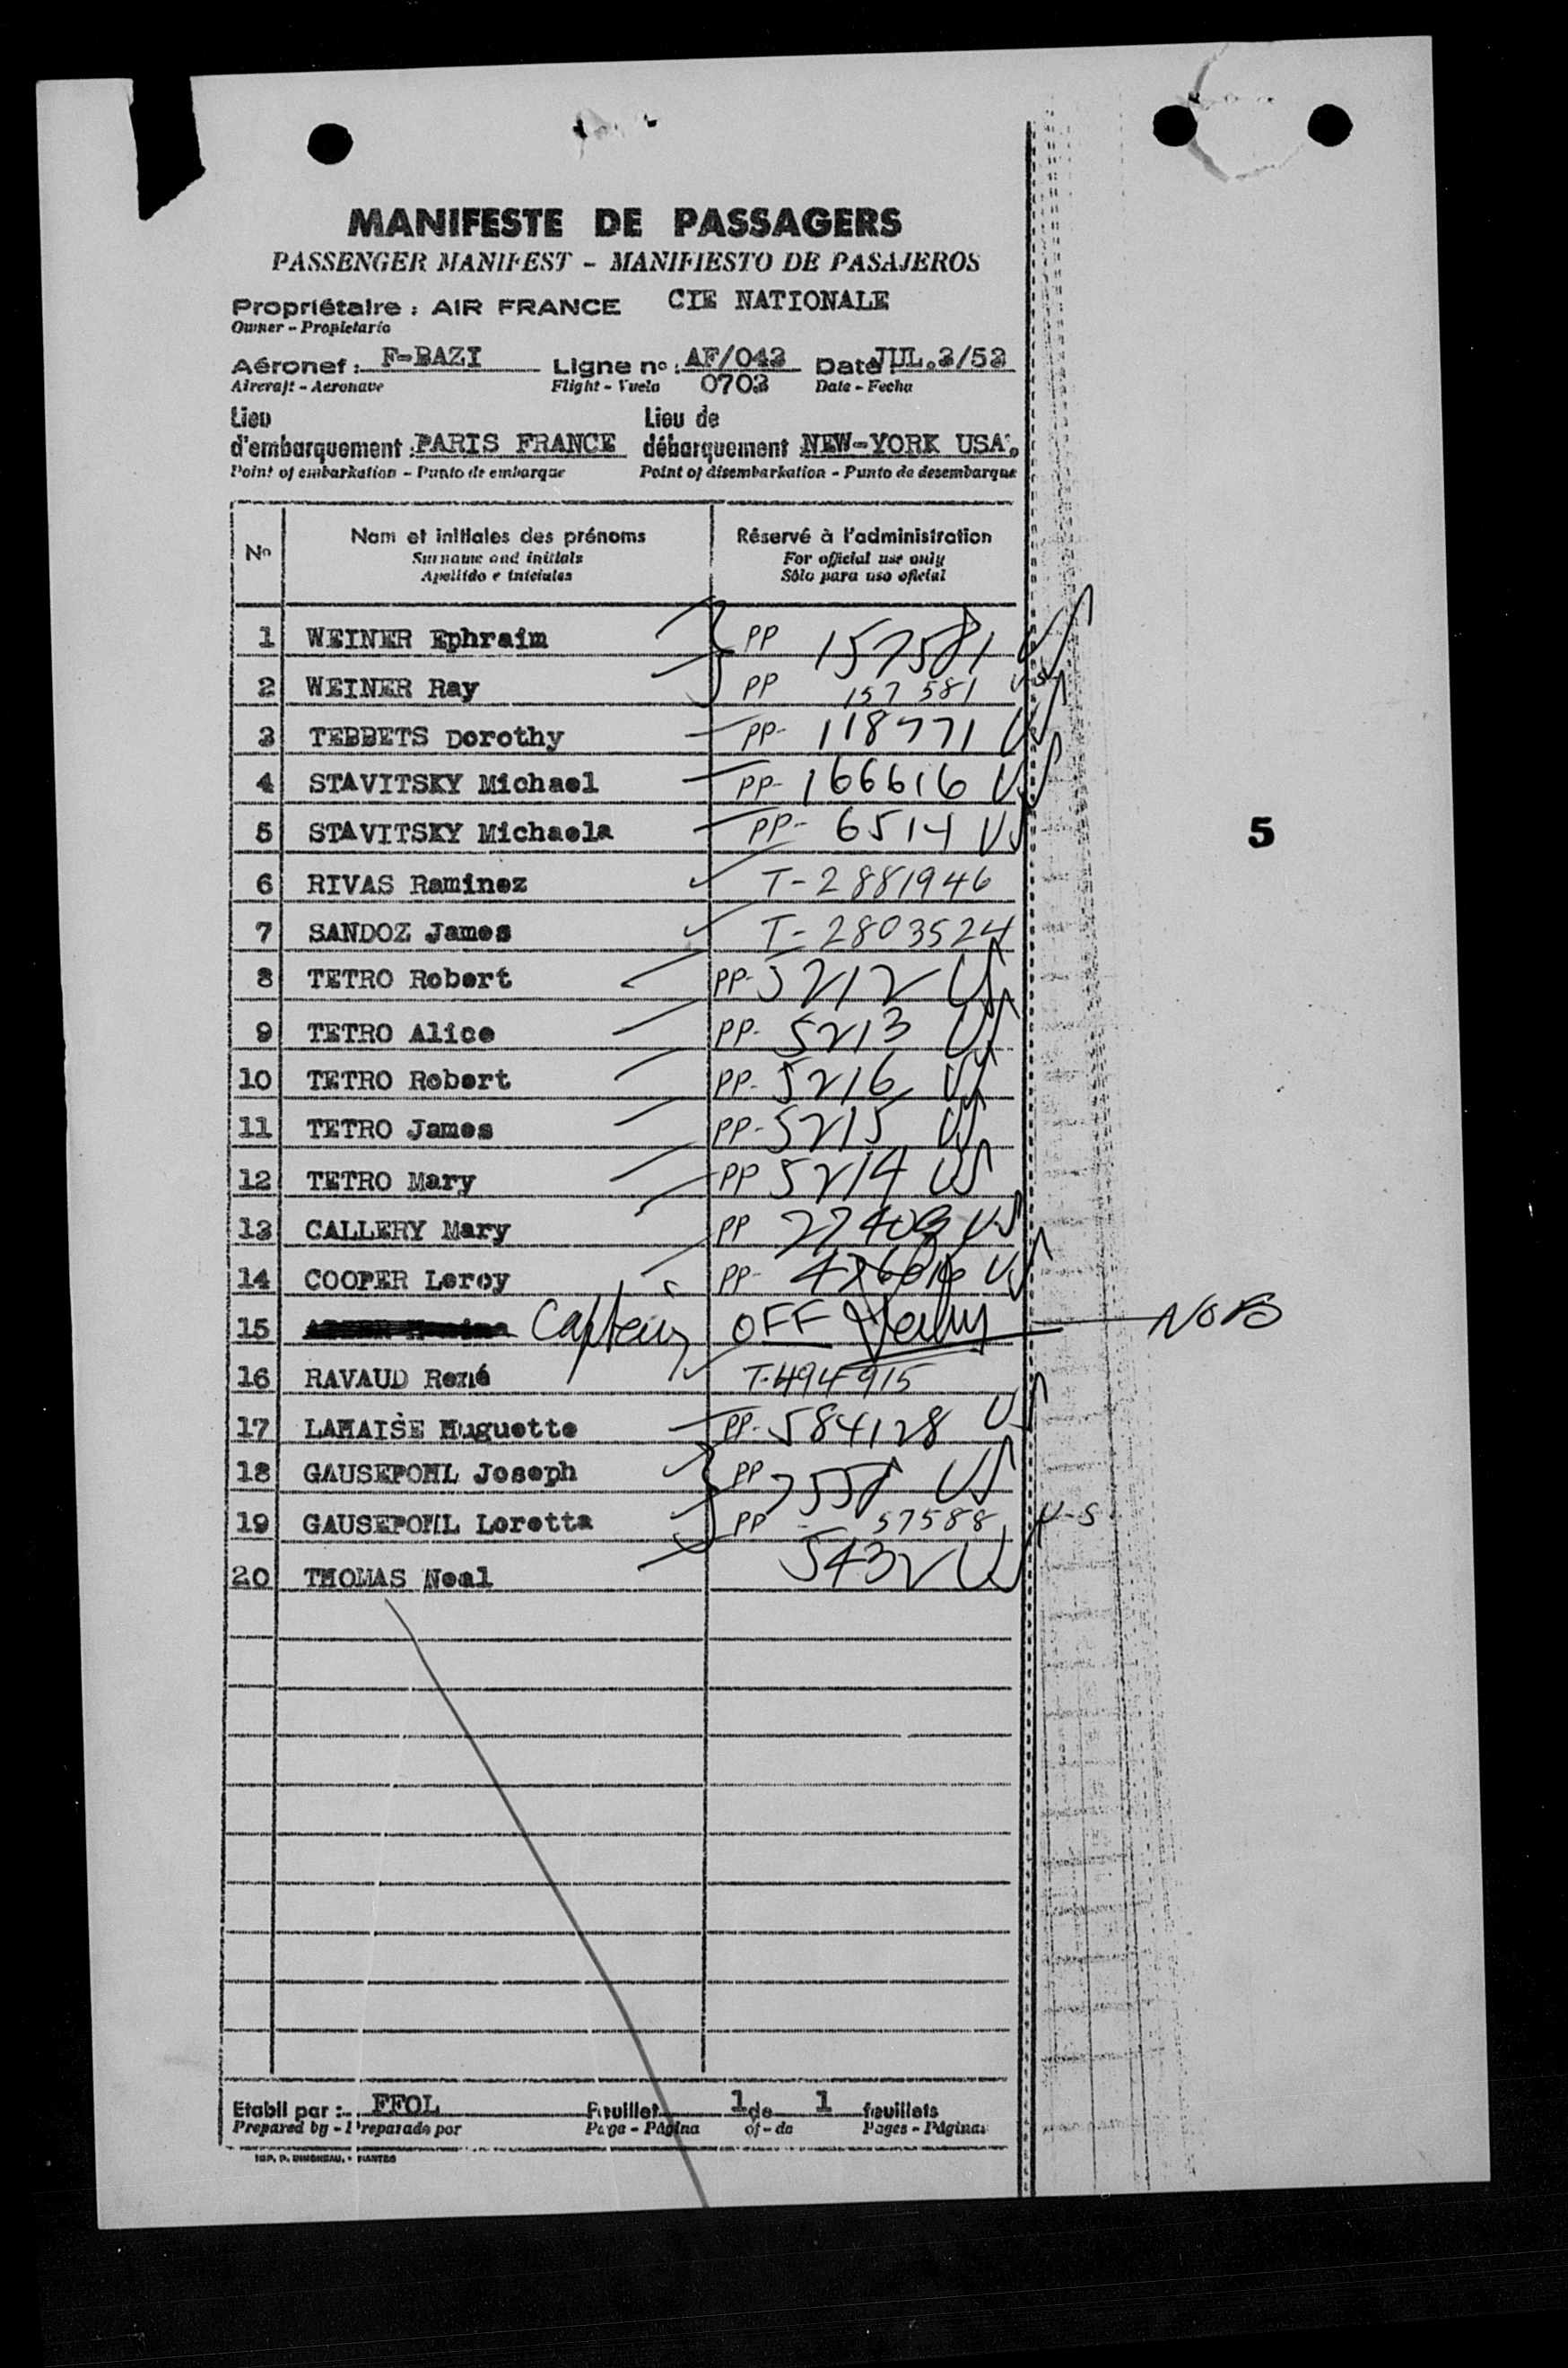 MANIFESTE DE PASSAGERS
PASSENGER MANIFEST - MANIFIESTO DE PASAJEROS
Propriétaire : AIR FRANCE CIE NATIONALE
Owner - Propietario
Aéronef : F-BAZI Ligne no : AF/043 Date JUL.3/53
Aircraft - Aeronave Flight - Vuelo 0703 Date - Fecha
Lieu Lieu de
d'embarquement : PARIS FRANCE débarquement NEW-YORK USA.
Point of embarkation - Punto de embarque Point of disembarkation - Punto de desembarque
No Nom et initiales des prénoms Réservé à l'administration
Surname and initials For official use only
Apellido e iniciales Sólo para uso oficial
1 WEINER Ephraim PP 157581 US
2 WEINER Ray PP 157581 U-S
3 TEBBETS Dorothy PP- 118771 US
4 STAVITSKY Michael PP- 166616 US
5 STAVITSKY Michaela PP- 6514 US
5
6 RIVAS Raminez T-2881946
7 SANDOZ James T-2803524
8 TETRO Robert PP-5212 US
9 TETRO Alice PP- 5213 US
10 TETRO Robert PP- 5216 US
11 TETRO James PP-5215 US
12 TETRO Mary PP 5214 US
13 CALLERY Mary PP US
14 COOPER Leroy PP- US
15 OFF NOB
16 RAVAUD René T-494915
17 LAMAISE Muguette PP-584128 US
18 GAUSEPOHL Joseph PP US
19 GAUSEPOHL Loretta PP - 57588 U-S
20 THOMAS Neal 5432 US
Etabli par : FFOL Feuillet 1 de 1 feuillets
Prepared by - Preparado por Page - Página of - de Pages - Páginas